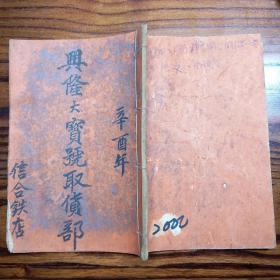 辛酉年
興隆大寶號取貨部
信合鉄店
2000